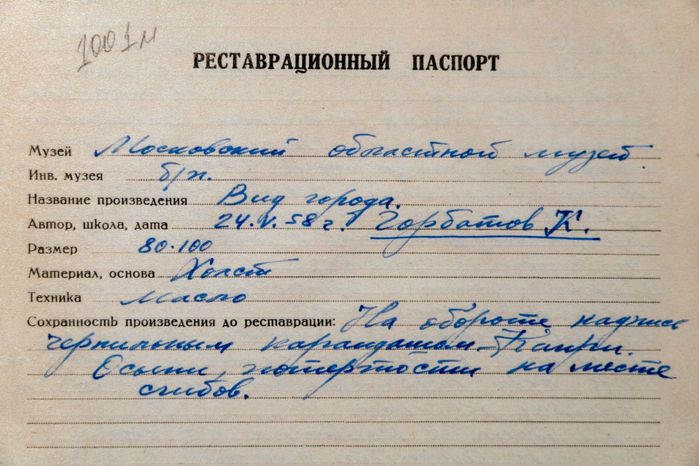 1001м
РЕСТАВРАЦИОННЫЙ ПАСПОРТ
Музей Московский областной музей.
Инв. музея б/н.
Название произведения Вид города.
Автор, школа, дата 24.V.58 г. Горбатов К.
Размер 80·100
Материал, основа Холст
Техника Масло
Сохранность произведения до реставрации: На обороте надпись
чернильным карандашом - Капри.
Осыпи, потертости на месте
сгибов.